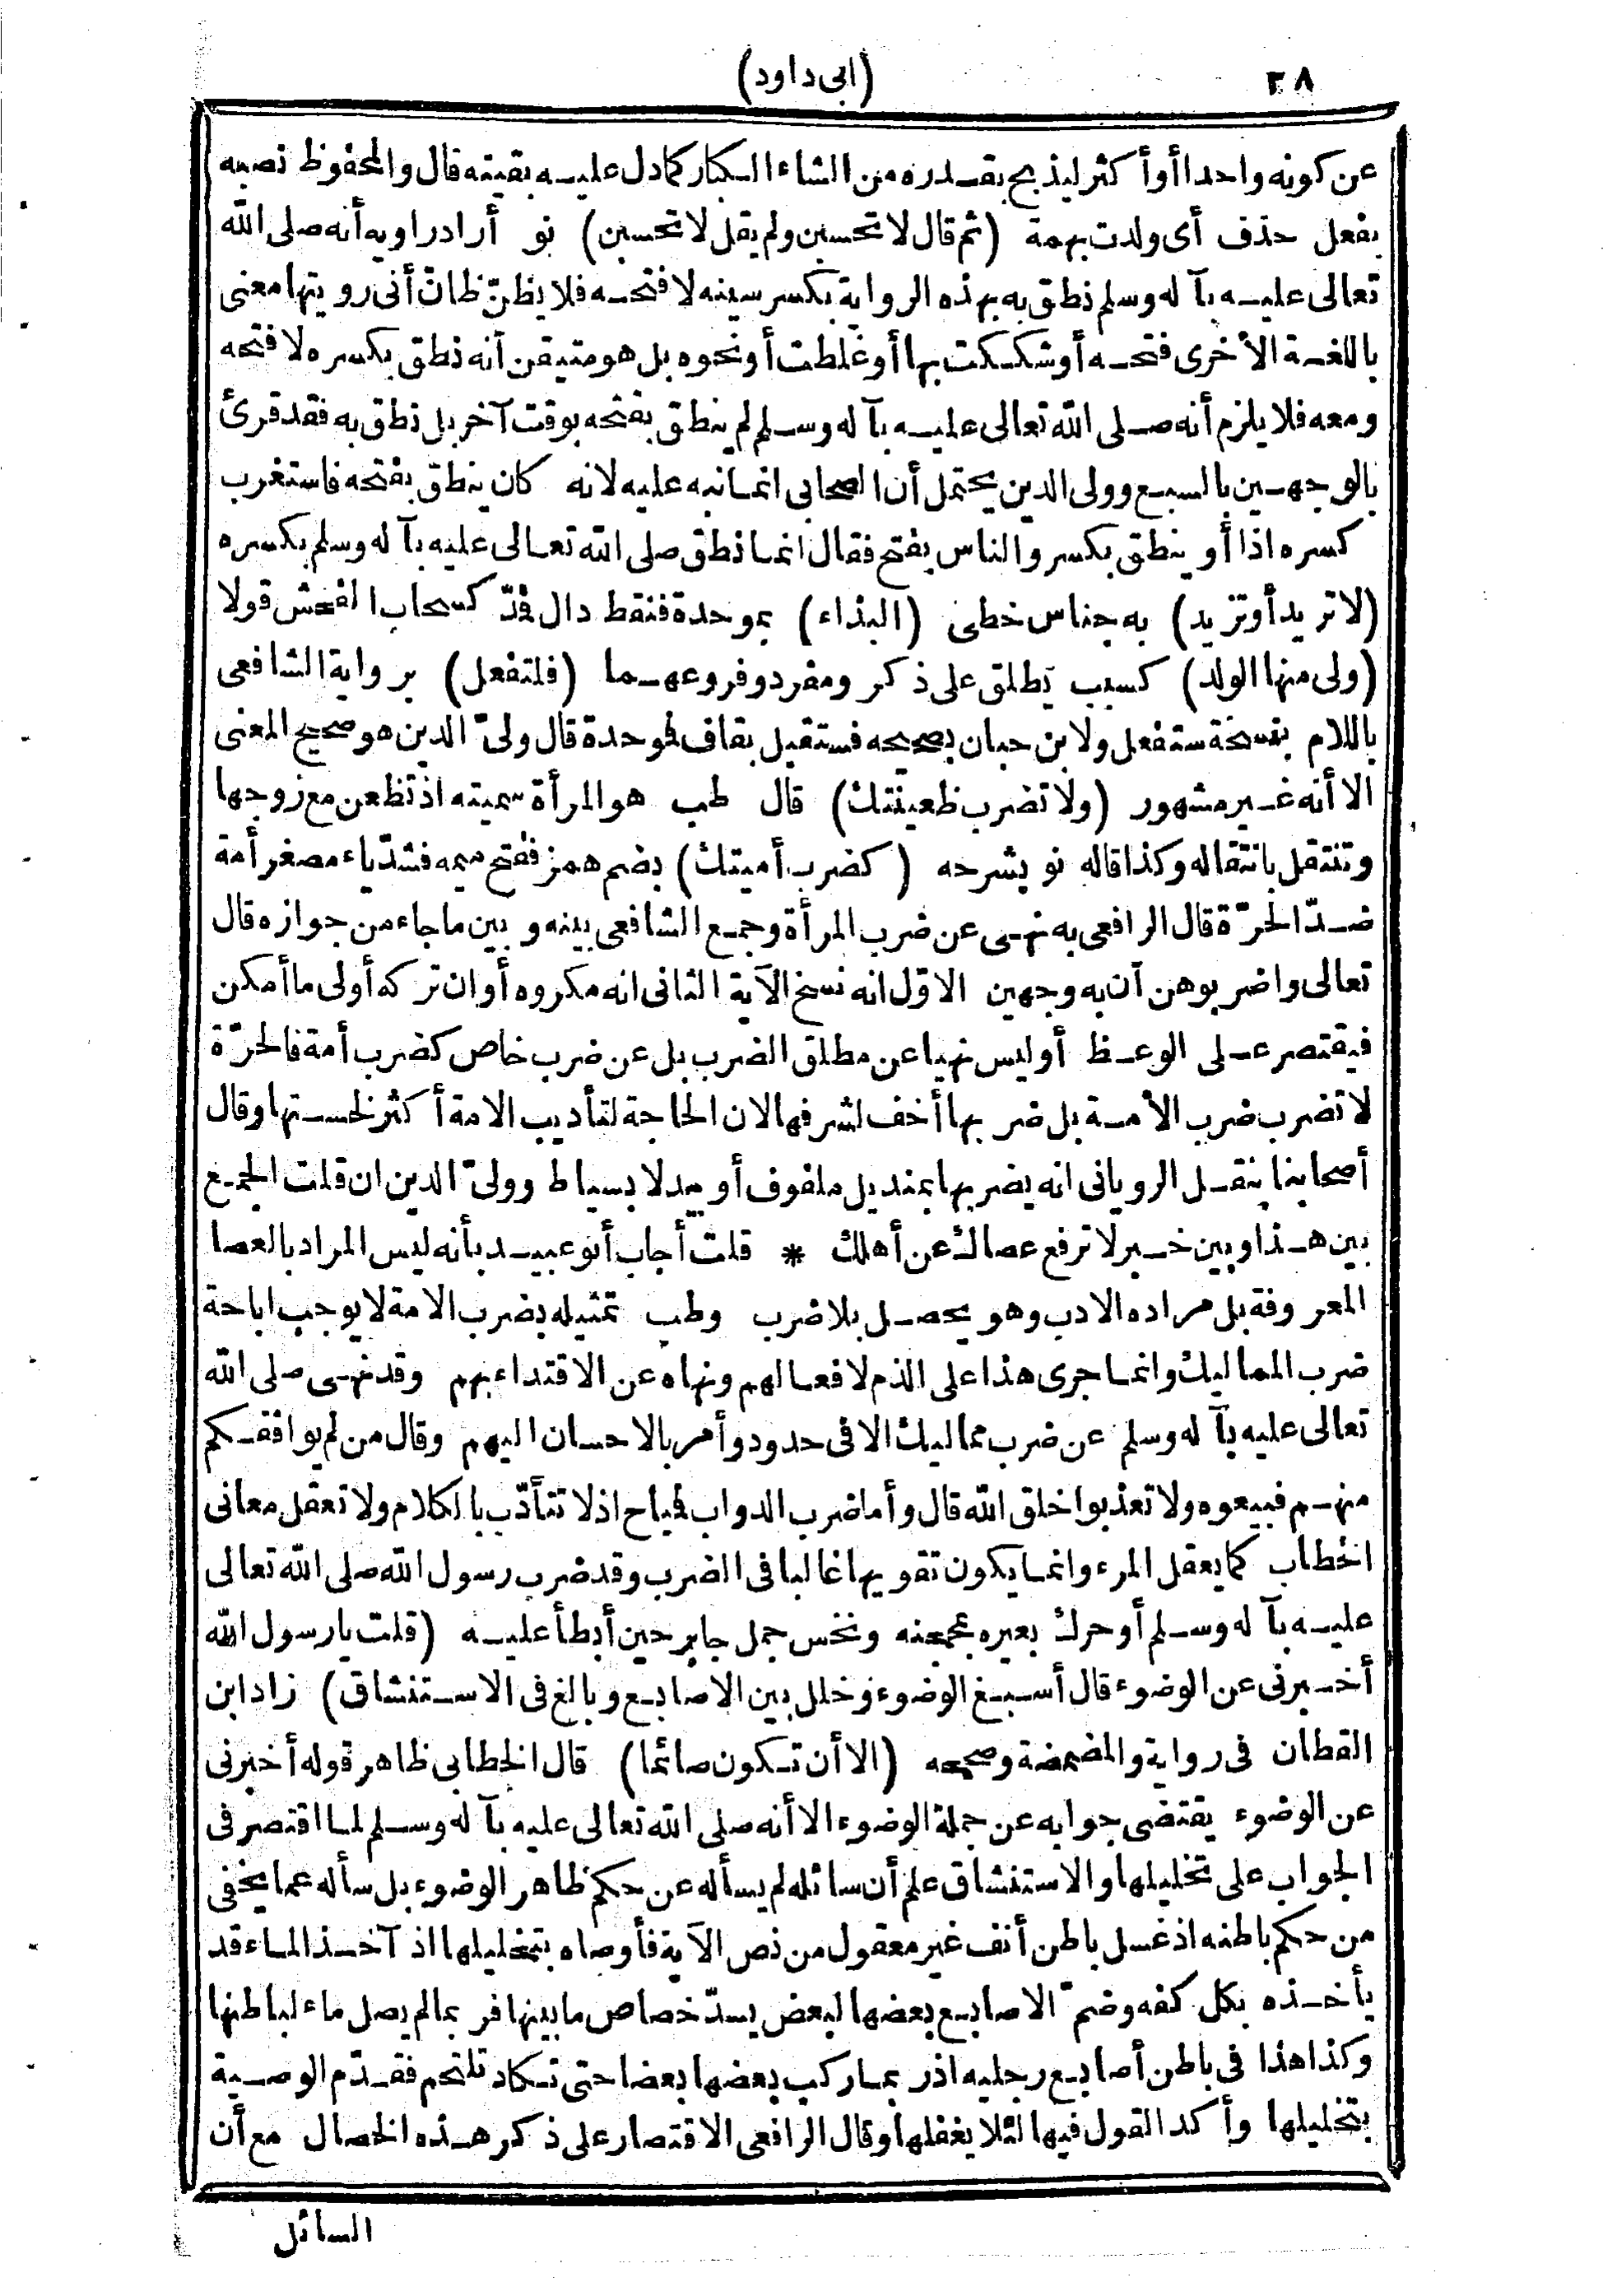 ٢٨
(ابى داود)
عن كونه واحدا أو أكثر ليذبح بقدره من الشاء الكبار كما دل عليه بقيته قال والمحفوظ نصبه
بفعل حذف أى ولدت بهمة (ثم قال لا تحسبن ولم يقل لا تحسبن) نو أراد راويه أنه صلى الله
تعالى عليه بآ له وسلم نطق به بهذه الرواية بكسر سينه لا فتحه فلا يظنّ ظانّ أنى رويتها معنى
باللغة الأخرى فتحه أو شككت بها أو غلطت أو نحوه بل هو متيقن أنه نطق بكسره لا فتحه
ومعه فلا يلزم أنه صلى الله تعالى عليه بآ له وسلم لم ينطق بفتحه بوقت آخر بل نطق به فقد قرئ
بالوجهين بالسبع وولى الدين يحتمل أن الصحابى انما نبه عليه لانه كان ينطق بفتحه فاستغرب
كسره اذا أو ينطق بكسر والناس بفتح فقال انما نطق صلى الله تعالى عليه بآ له وسلم بكسره
(لا تريد أو تزيد) به جناس خطى (البذاء) بموحدة فنقط دال فمدّ كسحاب الفحش قولا
(ولى منها الولد) كسبب يطلق على ذكر ومفرد وفروعهما (فلتفعل) برواية الشافعى
باللام بنسخة ستفعل ولابن حبان بصحيحه فستقبل بقاف فموحدة قال ولىّ الدين هو صحيح المعنى
الا أنه غير مشهور (ولا تضرب ظعينتك) قال طب هو المرأة سميته اذ تظعن مع زوجها
وتنتقل بانتقاله وكذا قاله نو بشرحه (كضرب أميتك) بضم همز ففتح ميمه فشدّ ياء مصغر أمة
ضدّ الحرّة قال الرافعى به نهى عن ضرب المرأة وجمع الشافعى بينه وبين ما جاء من جوازه قال
تعالى واضربوهن آن به وجهين الاوّل انه نسخ الآية الثانى انه مكروه أو ان تركه أولى ما أمكن
فيقتصر على الوعظ أو ليس نهيا عن مطلق الضرب بل عن ضرب خاص كضرب أمة فالحرّة
لا تضرب ضرب الأمة بل ضربها أخف لشرفها لان الحاجة لتأديب الامة أكثر لخستها وقال
أصحابنا بنقل الرويانى انه يضربها بمنديل ملفوف أو بيد لا بسياط وولىّ الدين ان قلت الجمع
بين هذا وبين خبر لا ترفع عصاك عن أهلك * قلت أجاب أبو عبيد بأنه ليس المراد بالعصا
المعروفة بل مراده الادب وهو يحصل بلا ضرب وطب تمثيله بضرب الامة لا يوجب اباحة
ضرب المماليك وانما جرى هذا على الذم لافعالهم ونهاه عن الاقتداء بهم وقد نهى صلى الله
تعالى عليه بآ له وسلم عن ضرب مماليك الا فى حدود وأمر بالاحسان اليهم وقال من لم يوافقكم
منهم فبيعوه ولا تعذبوا خلق الله قال وأما ضرب الدواب فمباح اذ لا تتأدّب بالكلام ولا تعقل معانى
الخطاب كما يعقل المرء وانما يكون تقويمها غالبا فى الضرب وقد ضرب رسول الله صلى الله تعالى
عليه بآ له وسلم أو حرك بعيره بمحجنه ونخس جمل جابر حين أبطأ عليه (قلت يا رسول الله
أخبرنى عن الوضوء قال أسبغ الوضوء وخلل بين الاصابع وبالغ فى الاستنشاق) زاد ابن
القطان فى رواية والمضمضة وصححه (الا أن تكون صائما) قال الخطابى ظاهر قوله أخبرنى
عن الوضوء يقتضى جوابه عن جملة الوضوء الا أنه صلى الله تعالى عليه بآ له وسلم لما اقتصر فى
الجواب على تخليلها والاستنشاق علم أن سائله لم يسأله عن حكم ظاهر الوضوء بل سأله عما يخفى
من حكم باطنه اذ غسل باطن أنف غير معقول من نص الآية فأوصاه بتخليلها اذ آخذ الماء قد
يأخذه بكل كفه وضمّ الاصابع بعضها لبعض يسدّ خصاص ما بينها فربما لم يصل ماء لباطنها
وكذا هذا فى باطن أصابع رجليه اذ ربما ركب بعضها بعضا حتى تكاد تلتحم فقدّم الوصية
بتخليلها وأكد القول فيها لئلا يغفلها وقال الرافعى الاقتصار على ذكر هذه الخصال مع أن
السائل